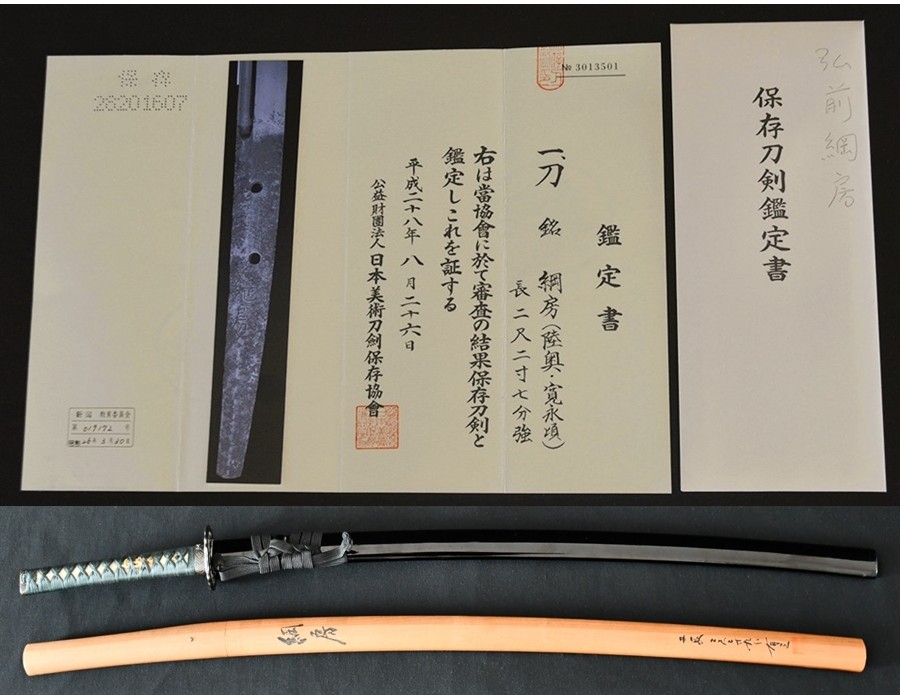 弘前綱房
保存刀剣鑑定書
№ 3013501
鑑定書
一、刀 銘 綱房(陸奥・寛永頃)
長二尺二寸七分強
右は當協會に於て審査の結果保存刀剣と
鑑定しこれを証する
平成二十八年八月二十六日
公益財團法人日本美術刀劍保存協會
保存
28201607
新潟 教育委員会
第 019172 号
綱房